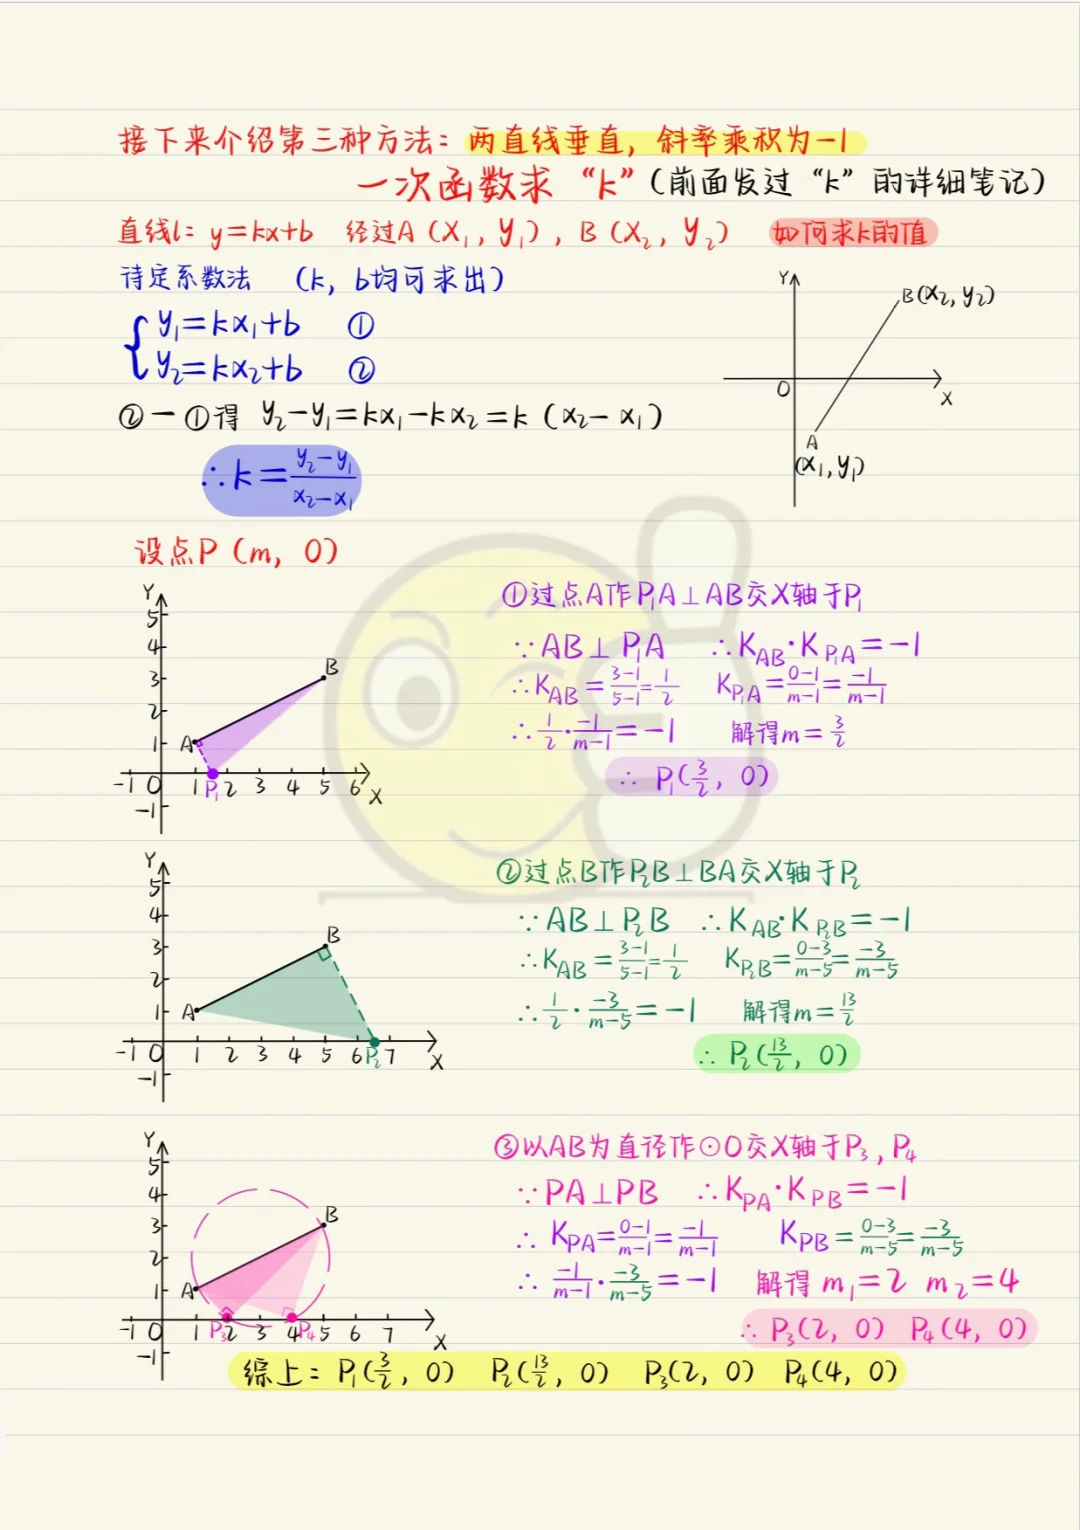 接下来介绍第三种方法：两直线垂直，斜率乘积为-1
一次函数求“k”（前面发过“k”的详细笔记）
直线l：y=kx+b 经过A（x₁，y₁），B（x₂，y₂） 如何求k的值
待定系数法 （k，b均可求出）
y₁=kx₁+b ①
y₂=kx₂+b ②
②-①得 y₂-y₁=kx₁-kx₂=k（x₂-x₁）
∴k=(y₂-y₁)/(x₂-x₁)
Y
B(x₂, y₂)
O
X
A
(x₁, y₁)
设点P（m，0）
Y
5
4
3
2
1
-1 0 1 P₁ 2 3 4 5 6 X
-1
A
B
①过点A作P₁A⊥AB交X轴于P₁
∵AB⊥P₁A ∴K_AB·K_P₁A=-1
∴K_AB=(3-1)/(5-1)=1/2 K_P₁A=(0-1)/(m-1)=-1/(m-1)
∴1/2·-1/(m-1)=-1 解得m=3/2
∴ P₁(3/2, 0)
Y
5
4
3
2
1
-1 0 1 2 3 4 5 6 P₂ 7 X
-1
A
B
②过点B作P₂B⊥BA交X轴于P₂
∵AB⊥P₂B ∴K_AB·K_P₂B=-1
∴K_AB=(3-1)/(5-1)=1/2 K_P₂B=(0-3)/(m-5)=-3/(m-5)
∴1/2·-3/(m-5)=-1 解得m=13/2
∴ P₂(13/2, 0)
Y
5
4
3
2
1
-1 0 1 P₃ 2 3 4 P₄ 5 6 7 X
-1
A
B
③以AB为直径作⊙O交X轴于P₃, P₄
∵PA⊥PB ∴K_PA·K_PB=-1
∴ K_PA=(0-1)/(m-1)=-1/(m-1) K_PB=(0-3)/(m-5)=-3/(m-5)
∴ -1/(m-1)·-3/(m-5)=-1 解得 m₁=2 m₂=4
∴ P₃(2, 0) P₄(4, 0)
综上：P₁(3/2, 0) P₂(13/2, 0) P₃(2, 0) P₄(4, 0)